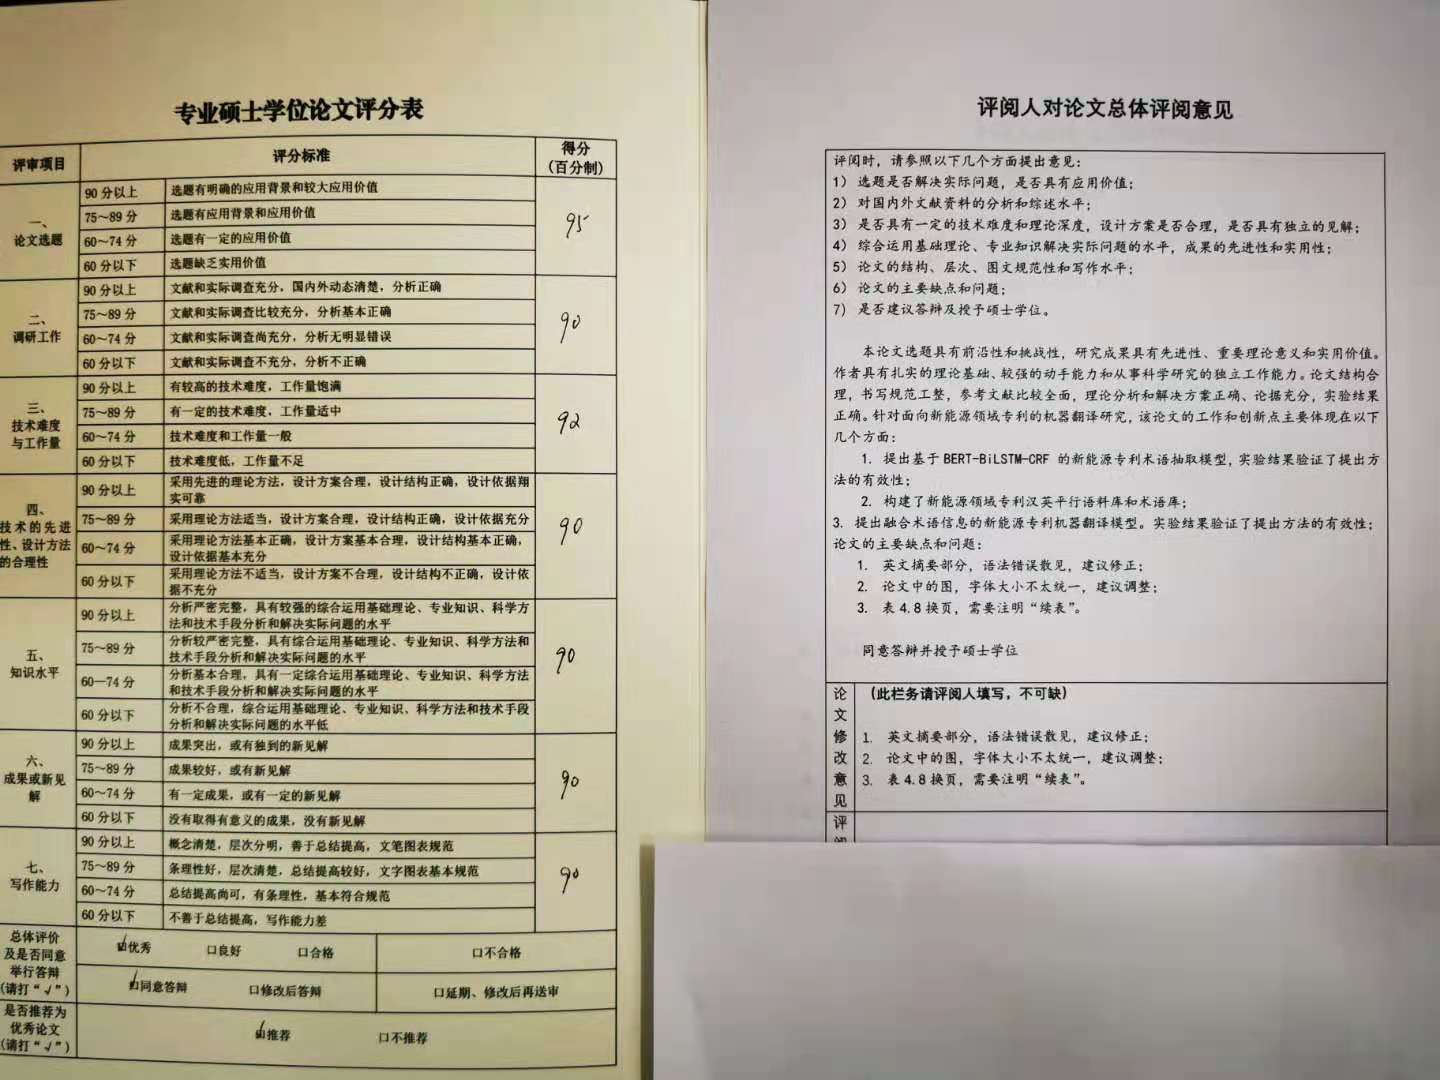 专业硕士学位论文评分表
评审项目 评分标准 得分(百分制)
一、论文选题
90 分以上 选题有明确的应用背景和较大应用价值
75～89 分 选题有应用背景和应用价值
60～74 分 选题有一定的应用价值
60 分以下 选题缺乏实用价值
95
二、调研工作
90 分以上 文献和实际调查充分，国内外动态清楚，分析正确
75～89 分 文献和实际调查比较充分，分析基本正确
60～74 分 文献和实际调查尚充分，分析无明显错误
60 分以下 文献和实际调查不充分，分析不正确
90
三、技术难度与工作量
90 分以上 有较高的技术难度，工作量饱满
75～89 分 有一定的技术难度，工作量适中
60～74 分 技术难度和工作量一般
60 分以下 技术难度低，工作量不足
92
四、技术的先进性、设计方法的合理性
90 分以上 采用先进的理论方法，设计方案合理，设计结构正确，设计依据翔
实可靠
75～89 分 采用理论方法适当，设计方案合理，设计结构正确，设计依据充分
60～74 分 采用理论方法基本正确，设计方案基本合理，设计结构基本正确，
设计依据基本充分
60 分以下 采用理论方法不适当，设计方案不合理，设计结构不正确，设计依
据不充分
90
五、知识水平
90 分以上 分析严密完整，具有较强的综合运用基础理论、专业知识、科学方
法和技术手段分析和解决实际问题的水平
75～89 分 分析较严密完整，具有综合运用基础理论、专业知识、科学方法和
技术手段分析和解决实际问题的水平
60—74 分 分析基本合理，具有一定综合运用基础理论、专业知识、科学方法
和技术手段分析和解决实际问题的水平
60 分以下 分析不合理，综合运用基础理论、专业知识、科学方法和技术手段
分析和解决实际问题的水平低
90
六、成果或新见解
90 分以上 成果突出，或有独到的新见解
75～89 分 成果较好，或有新见解
60～74 分 有一定成果，或有一定的新见解
60 分以下 没有取得有意义的成果，没有新见解
90
七、写作能力
90 分以上 概念清楚，层次分明，善于总结提高，文笔图表规范
75～89 分 条理性好，层次清楚，总结提高较好，文字图表基本规范
60～74 分 总结提高尚可，有条理性，基本符合规范
60 分以下 不善于总结提高，写作能力差
90
总体评价及是否同意举行答辩(请打“√”)
☑优秀 □良好 □合格 □不合格
☑同意答辩 □修改后答辩 □延期、修改后再送审
是否推荐为优秀论文(请打“√”)
☑推荐 □不推荐
评阅人对论文总体评阅意见
评阅时，请参照以下几个方面提出意见：
1） 选题是否解决实际问题，是否具有应用价值；
2） 对国内外文献资料的分析和综述水平；
3） 是否具有一定的技术难度和理论深度，设计方案是否合理，是否具有独立的见解；
4） 综合运用基础理论、专业知识解决实际问题的水平，成果的先进性和实用性；
5） 论文的结构、层次、图文规范性和写作水平；
6） 论文的主要缺点和问题；
7） 是否建议答辩及授予硕士学位。
本论文选题具有前沿性和挑战性，研究成果具有先进性、重要理论意义和实用价值。
作者具有扎实的理论基础、较强的动手能力和从事科学研究的独立工作能力。论文结构合
理，书写规范工整，参考文献比较全面，理论分析和解决方案正确、论据充分，实验结果
正确。针对面向新能源领域专利的机器翻译研究，该论文的工作和创新点主要体现在以下
几个方面：
1. 提出基于 BERT-BiLSTM-CRF 的新能源专利术语抽取模型，实验结果验证了提出方
法的有效性；
2. 构建了新能源领域专利汉英平行语料库和术语库；
3. 提出融合术语信息的新能源专利机器翻译模型。实验结果验证了提出方法的有效性；
论文的主要缺点和问题：
1. 英文摘要部分，语法错误散见，建议修正；
2. 论文中的图，字体大小不太统一，建议调整；
3. 表 4.8 换页，需要注明“续表”。
同意答辩并授予硕士学位
论文修改意见
（此栏务请评阅人填写，不可缺）
1. 英文摘要部分，语法错误散见，建议修正；
2. 论文中的图，字体大小不太统一，建议调整；
3. 表 4.8 换页，需要注明“续表”。
评